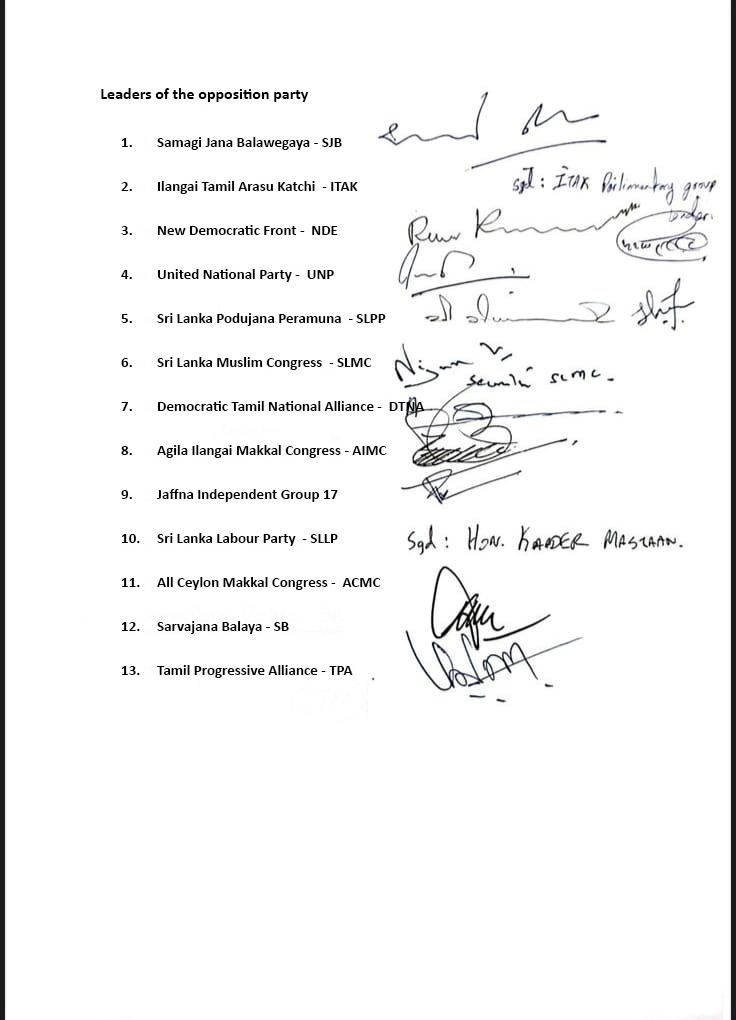 Leaders of the opposition party
1. Samagi Jana Balawegaya - SJB
2. Ilangai Tamil Arasu Katchi - ITAK
sgd : ITAK Parlimentary group
leader.
3. New Democratic Front - NDE
4. United National Party - UNP
5. Sri Lanka Podujana Peramuna - SLPP
6. Sri Lanka Muslim Congress - SLMC
SLMC.
7. Democratic Tamil National Alliance - DTNA
8. Agila Ilangai Makkal Congress - AIMC
9. Jaffna Independent Group 17
10. Sri Lanka Labour Party - SLLP
Sgd : HON. KAADER MASTAAN.
11. All Ceylon Makkal Congress - ACMC
12. Sarvajana Balaya - SB
13. Tamil Progressive Alliance - TPA